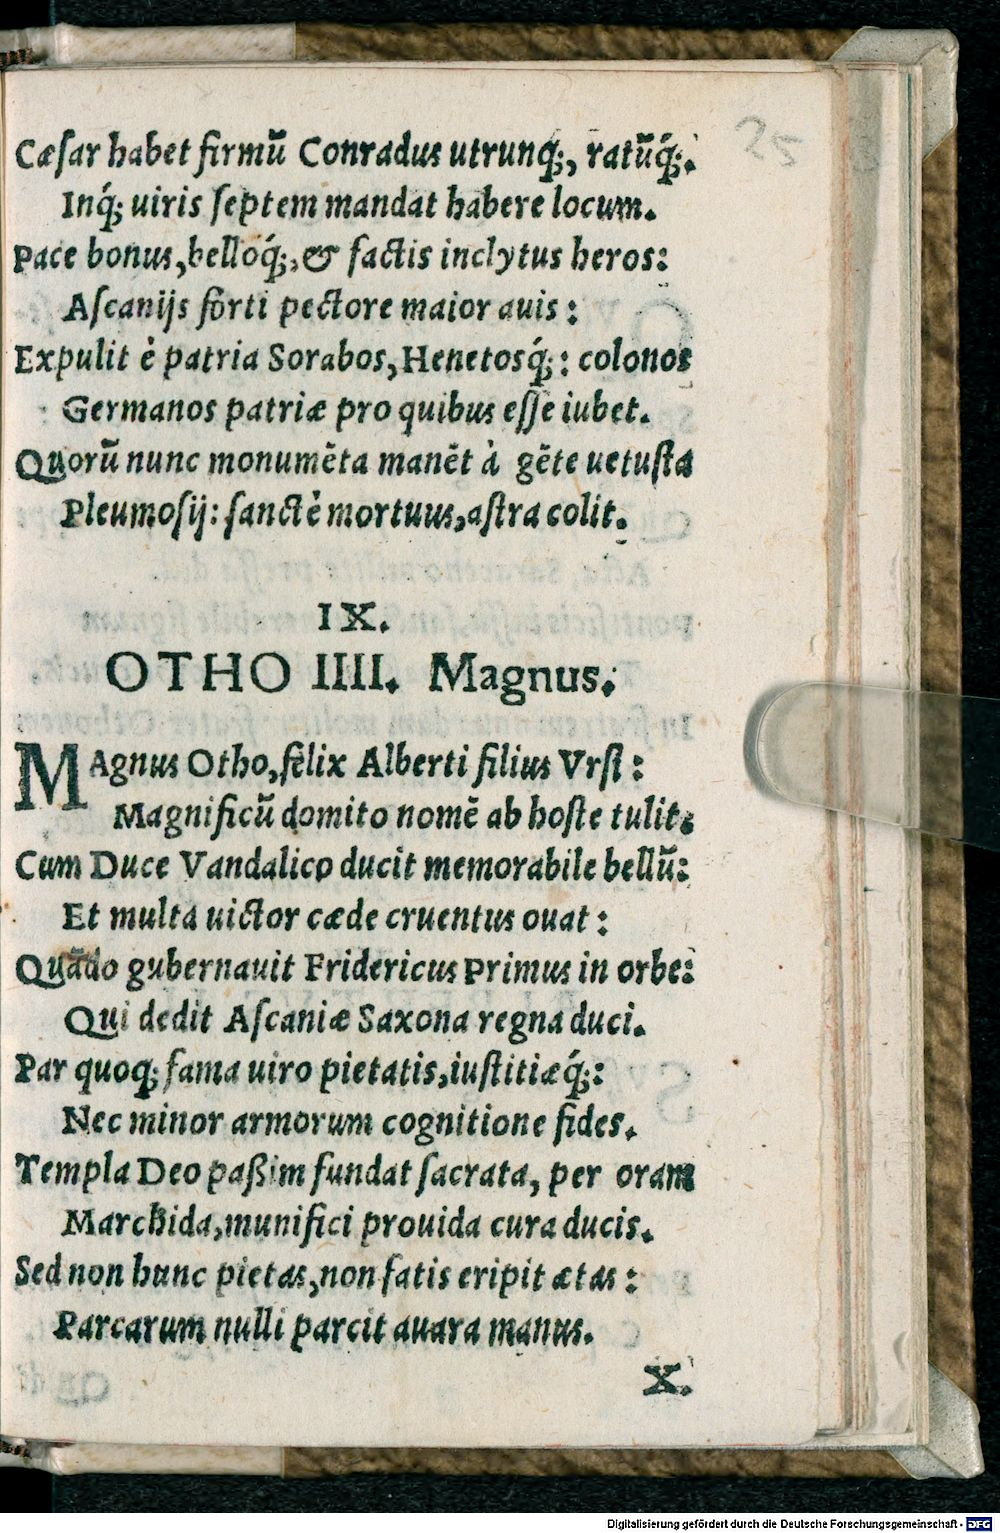 25
Cæſar habet firmũ Conradus utrunq;, ratũq́;.
Inq́; uiris ſeptem mandat habere locum.
Pace bonus, belloq́;, & factis inclytus heros:
Aſcanijs forti pectore maior auis:
Expulit è patria Sorabos, Henetosq́;: colonos
Germanos patriæ pro quibus eſſe iubet.
Quorũ nunc monumẽta manẽt à gẽte uetuſta
Pleumoſij: ſanctè mortuus, aſtra colit.
IX.
OTHO IIII. Magnus.
MAgnus Otho, felix Alberti filius Vrſi:
Magnificũ domito nomẽ ab hoſte tulit.
Cum Duce Vandalico ducit memorabile bellũ:
Et multa uictor cæde cruentus ouat:
Quãdo gubernauit Fridericus Primus in orbe:
Qui dedit Aſcaniæ Saxona regna duci.
Par quoq; fama uiro pietatis, iuſtitiæq́;:
Nec minor armorum cognitione fides.
Templa Deo paßim fundat ſacrata, per oram
Marchida, munifici prouida cura ducis.
Sed non hunc pietas, non fatis eripit ætas:
Parcarum nulli parcit auara manus.
X.
Digitalisierung gefördert durch die Deutsche Forschungsgemeinschaft - DFG